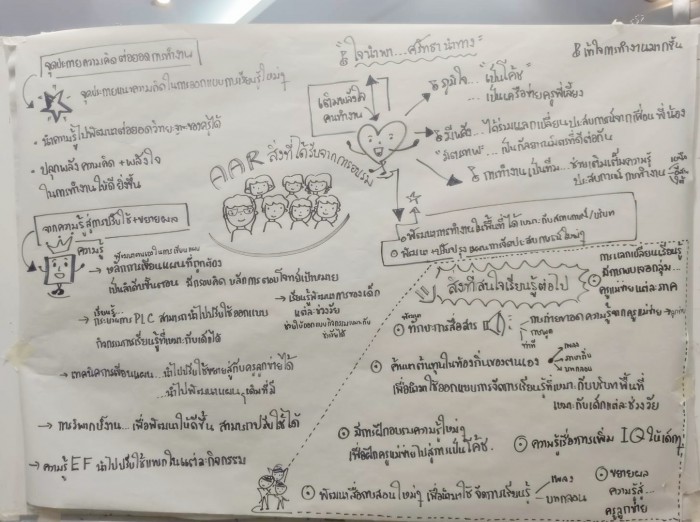 จุดประกายความคิดต่อยอดการทำงาน
จุดประกายแนวความคิดในการออกแบบการเรียนรู้ใหม่ๆ
• นำความรู้ไปพัฒนาต่อยอดวิทยฐานะของครูได้
• ปลุกพลังความคิด + พลังใจ
ในการทำงานให้ดียิ่งขึ้น
จากความรู้สู่การปรับใช้ + ขยายผล
ความรู้
→ หลักการเขียนแผนที่ถูกต้อง
เป็นลำดับขั้นตอน
→ เรียนรู้พัฒนาการของเด็ก
แต่ละช่วงวัย
กระบวนการ PLC สามารถนำไปปรับใช้ออกแบบ
กิจกรรมการเรียนรู้ที่เหมาะกับเด็กได้
→ เทคนิคการเขียนแผน...นำไปปรับใช้ขยายสู่กับครูลูกข่ายได้
...นำไปพัฒนาแผนเดิมที่มี
→ การวิพากษ์งาน... เพื่อพัฒนาให้ดีขึ้น สามารถปรับใช้ได้
→ ความรู้ EF นำไปปรับใช้แทรกในแต่ละกิจกรรม
AAR สิ่งที่ได้รับจากการอบรม
ใจนำพา...ศรัทธานำทาง
เติมพลังใจ
คนทำงาน
ภูมิใจ... "เป็นโค้ช"
...เป็นเครือข่ายครูพี่เลี้ยง
...ได้ร่วมแลกเปลี่ยนประสบการณ์จากเพื่อน พี่ น้อง
"มิตรภาพ"... เป็นกัลยาณมิตรที่ดีต่อกัน
การทำงานเป็นทีม...ช่วยเติมเต็มความรู้
ประสบการณ์การทำงาน
เข้าใจการทำงานมากขึ้น
สิ่งที่สนใจเรียนรู้ต่อไป
การแลกเปลี่ยนเรียนรู้
ครูแม่ข่ายแต่ละภาค
ทักษะการสื่อสาร
การถ่ายทอดความรู้จากครูแม่ข่าย
การพูด
ท่าที
ค้นหาต้นทุนในท้องถิ่นของตนเอง
เพลง
บทกลอน
เพื่อนำมาใช้ออกแบบการจัดการเรียนรู้ที่เหมาะกับบริบทพื้นที่
เหมาะกับเด็กแต่ละช่วงวัย
มีการฝึกอบรมความรู้ใหม่ๆ
เพื่อฝึกครูแม่ข่ายไปสู่การเป็นโค้ช
ความรู้เรื่องการเพิ่ม IQ ให้เด็ก
พัฒนาสื่อการสอนใหม่ๆ เพื่อนำมาใช้จัดการเรียนรู้
เพลง
บทกลอน
ขยายผล
ความรู้สู่
ครูลูกข่าย